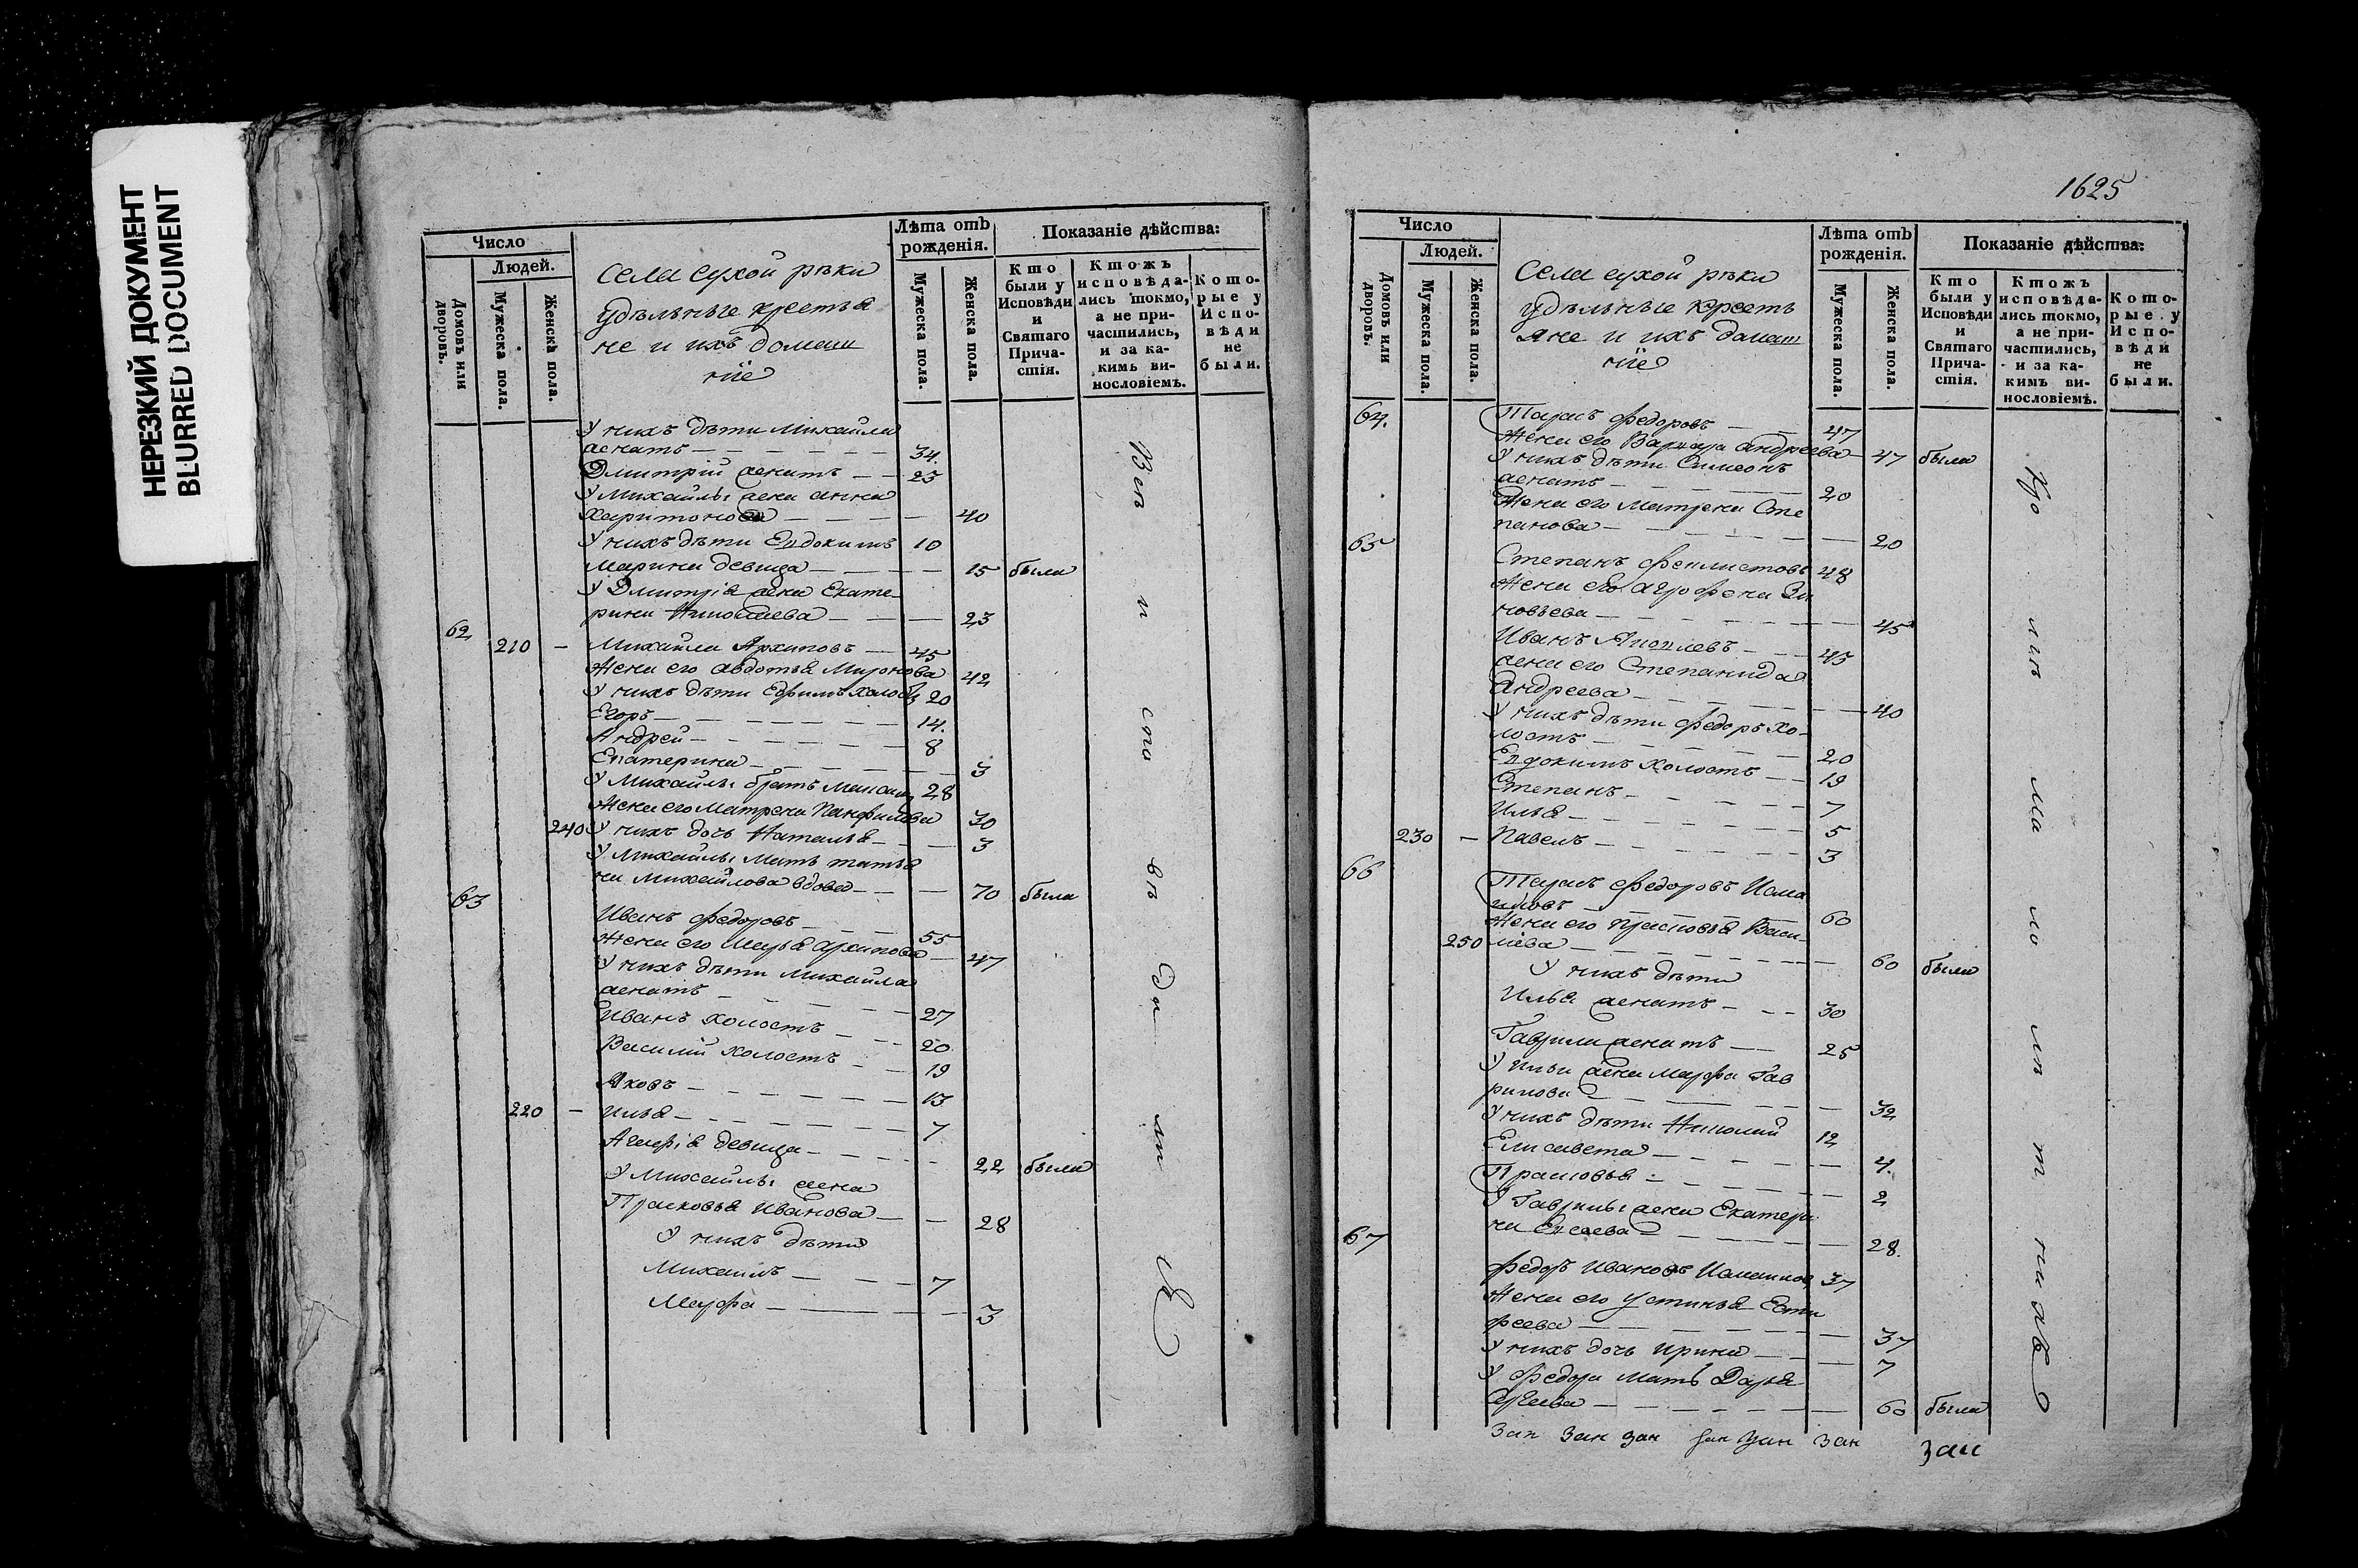 НЕРЕЗКИЙ ДОКУМЕНТ
BLURRED DOCUMENT
Число
Людей.
Домовъ или дворовъ.
Мужеска пола.
Женскa пола.
Села сухой рѣки
Удѣльные крестья
не и ихъ домаш
ніе
Лѣта отъ рожденія.
Мужеска пола.
Женска пола.
Показаніе дѣйства:
Кто были у Исповѣди и Святаго Прича-стія.
Ктожъ исповѣда-лись токмо, а не при-частились, и за ка-кимъ ви-нословіемъ.
Кото-рые у Испо-вѣди не были.
У нихъ дѣти Михайла
женатъ 34.
Дмитрій женатъ 25
У Михайлы жена Анна
Харитонова 40
У нихъ дѣти Евдокимъ 10
Марина девица 15 были
У Дмитрія жена Екате-
рина 23
62 210 Михайла Архиповъ 45
Жена его Авдотья Миронова 42
У нихъ дѣти Ефимъ холос 20
Егоръ 14.
Андрей 8
Екатерина 3
У Михайлы братъ Максим 28
Жена его Матрена Панфилова 30
240 У нихъ дочь Наталья 3
У Михайлы мать татья
на Михайлова вдова 70 были
63
Иванъ Федоровъ 55
Жена его Марья Архипова 47
У нихъ дѣти Михайла
женатъ 27
Иванъ холостъ 20
Василій холостъ 19
Яковъ 13
220 Илья 7
девица 22 были
У Михайлы жена
Прасковья Иванова 28
У нихъ дѣти
Михаилъ 7
Марфа 3
1625
Число
Людей.
Домовъ или дворовъ.
Мужеска пола.
Женска пола.
Села сухой рѣки
Удѣльные кресть
яне и ихъ домаш
ніе
Лѣта отъ рожденія.
Мужеска пола.
Женска пола.
Показаніе дѣйства:
Кто были у Исповѣди и Святаго Прича-стія.
Ктожъ исповѣда-лись токмо, а не при-частились, и за ка-кимъ ви-нословіемъ.
Кото-рые у Испо-вѣди не были.
64. Тарасъ Федоровъ 47
Жена его Варвара Андреева 47 были
У нихъ дѣти Симеонъ
женатъ 20
Жена его Матрена Сте
панова 20
65
Степанъ 48
Жена его Агрофена Зи
новьева 45
Иванъ 45
жена его Степанида
Андреева 40
У нихъ дѣти Федоръ хо-
лостъ 20
Евдокимъ холостъ 19
Степанъ 7
Илья 5
230 Павелъ 3
66
Тарасъ Федоровъ Исма
иловъ 60
Жена его Прасковья Васи-
250 лієва 60 были
У нихъ дѣти
Илья женатъ 30
Гаврила женатъ 25
У Ильи жена Марфа Гав
рилова 32
У нихъ дѣти Николай 12
Елисавета 4.
Прасковья 2
У Гаврилы жена Екатери
на Евсеева 28.
67
Федоръ Ивановъ Исмаилов 37
Жена его Устинья Евти
феева 37
У нихъ дочь Ирина 7
У Федора мать Дарья
60 были
зан зан зан зан зан зан зан